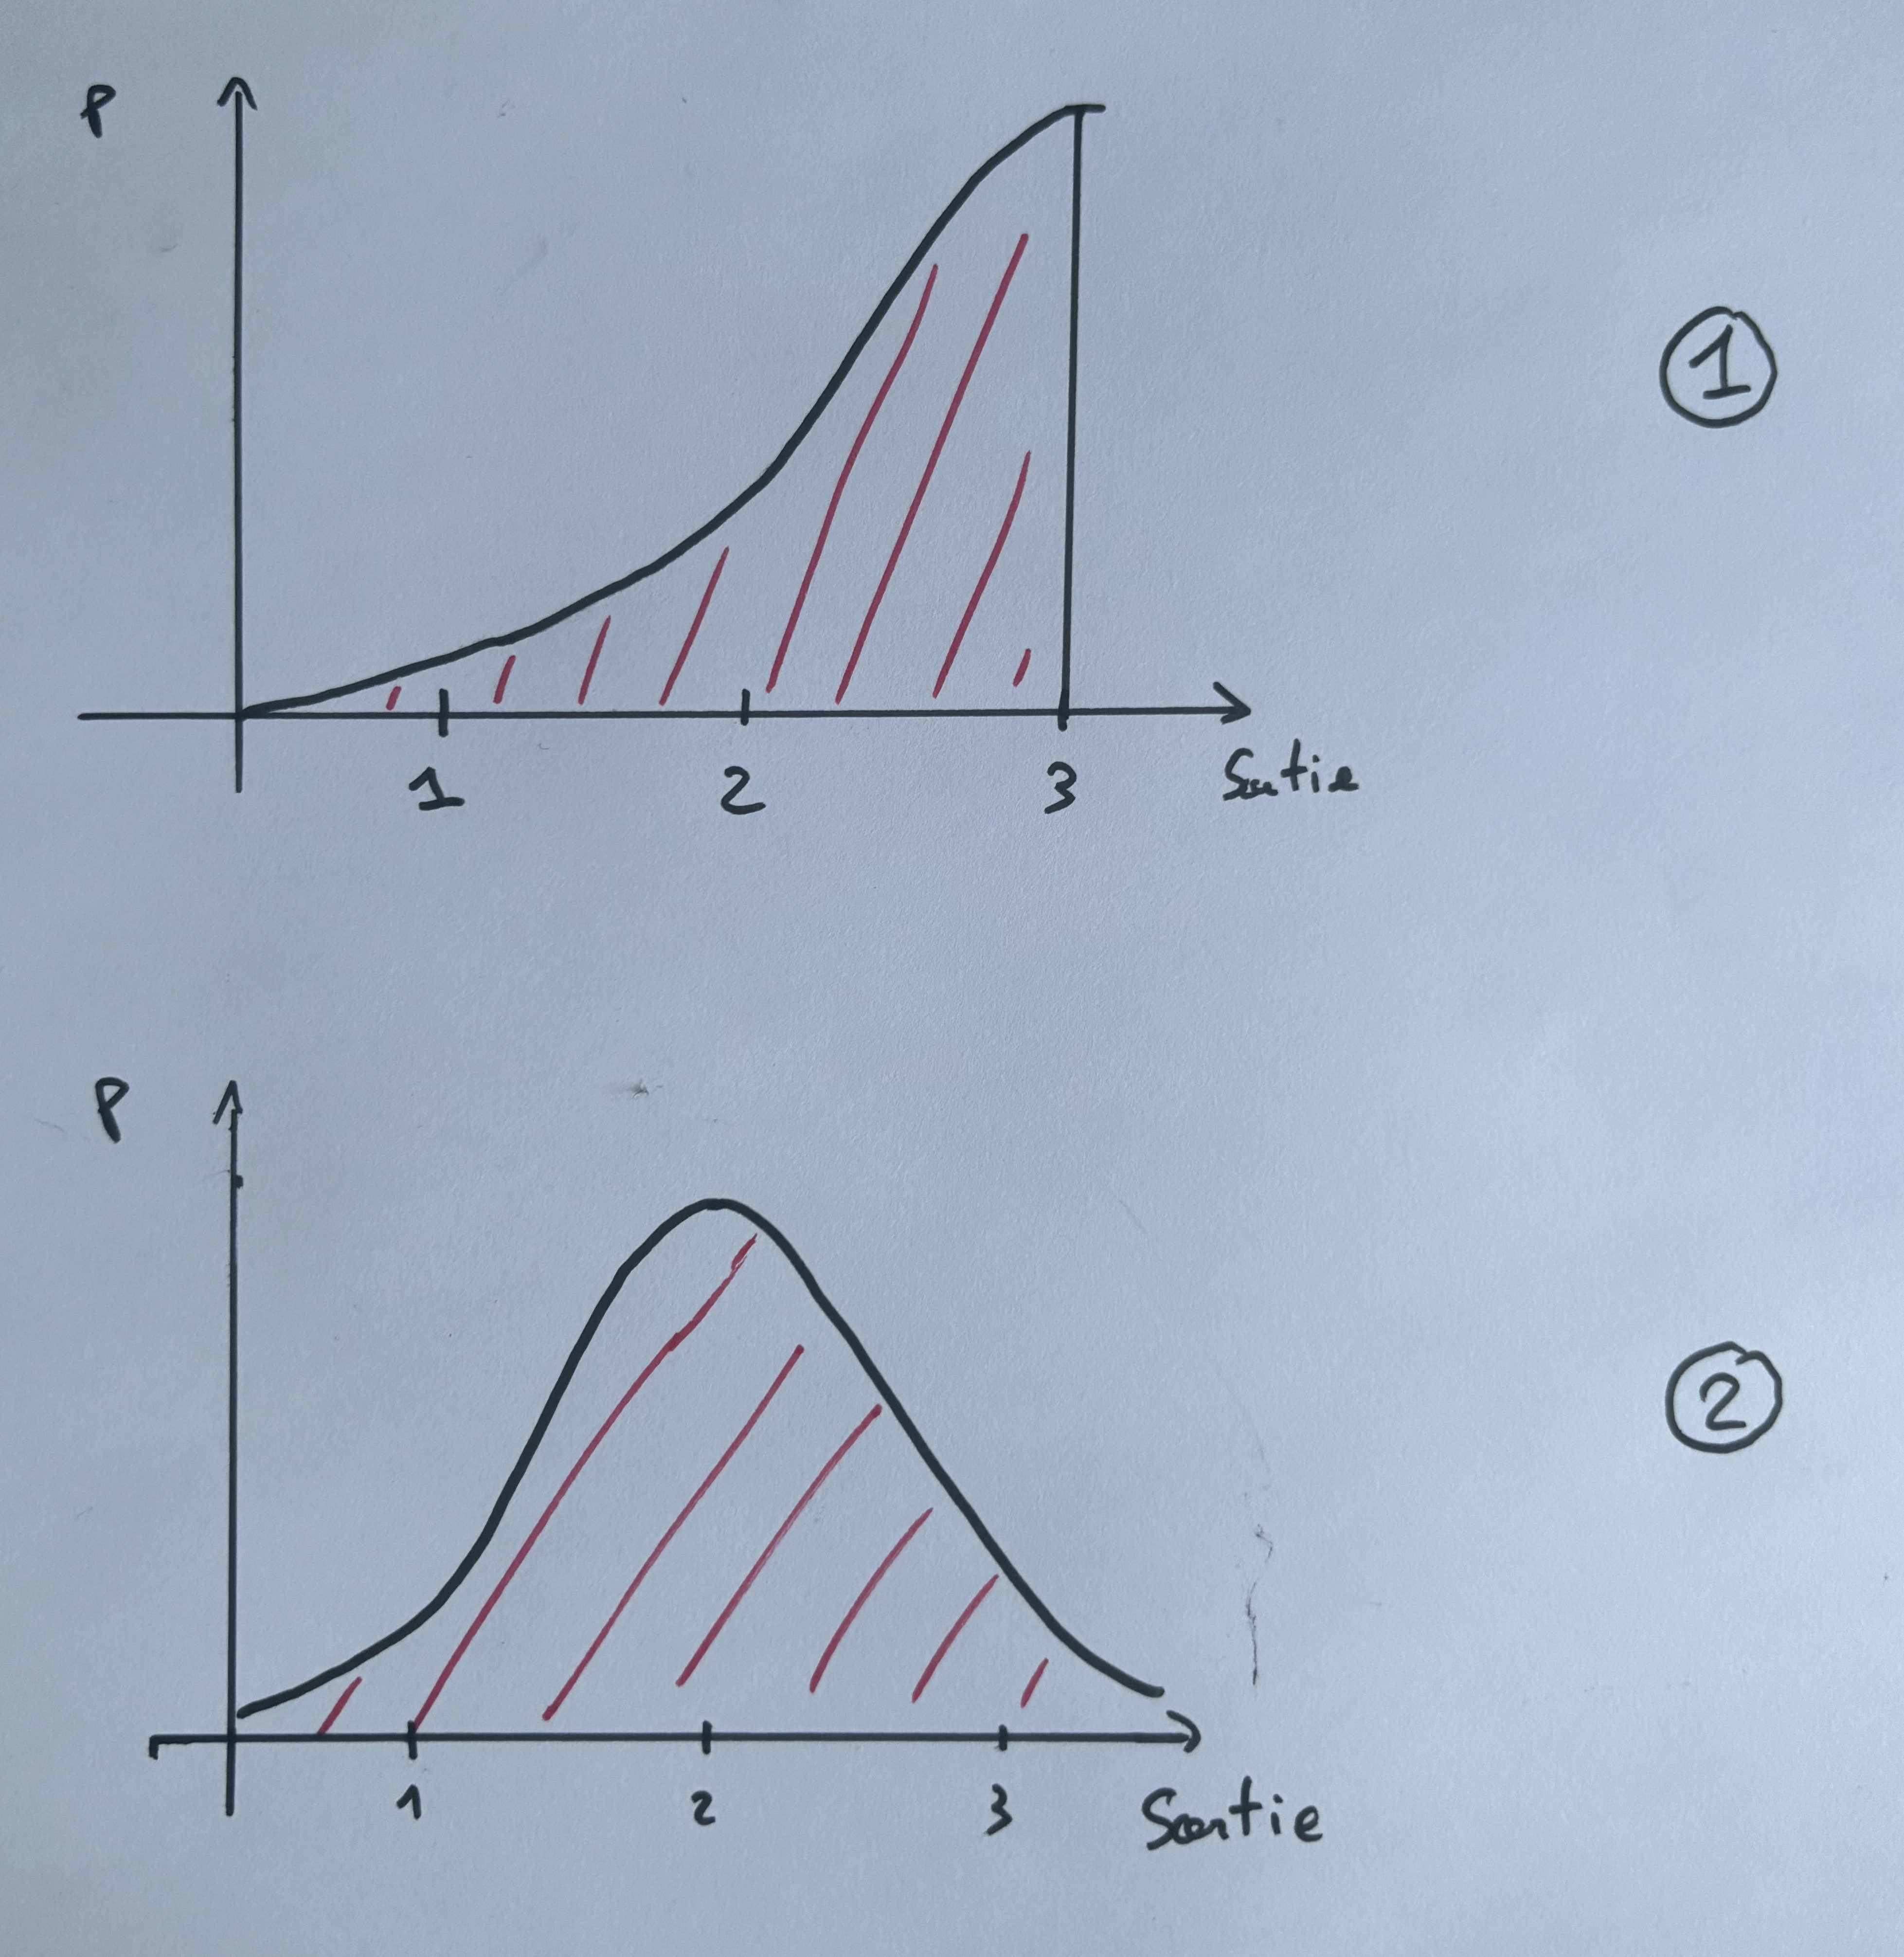 P
1
1 2 3 Sortie
P
2
1 2 3 Sortie